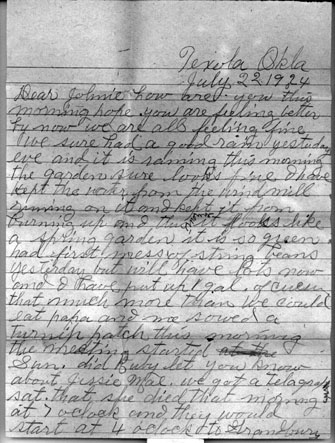 Texola Okla
July 22 1924
Dear Johnie how are you this
morning hope you are feeling better
by now we are all feeling fine
we sure had a good rain yesterday
eve and it is raining this morning
the garden sure looks fine I have
kept the water from the wind mill
running on it and kept it from
burning up and this morning it looks like
a spring garden it is so green
had first mess of string beans
yesterday but will have lots now
and I have put up 1 gal of cucum
that much more than we could
eat papa and me sowed a
turnip patch this morning
the meeting started at the
Sun. did Ruby let you know
about Jessie Mae. we got a telagraph
sat. that she died that morning
at 7 oclock and they would
start at 4 oclock to Granbury